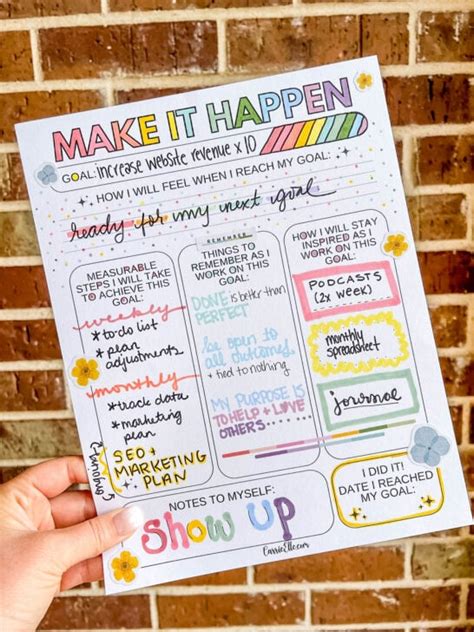 MAKE IT HAPPEN
GOAL: increase website revenue x 10
HOW I WILL FEEL WHEN I REACH MY GOAL:
ready for my next goal
MEASURABLE
STEPS I WILL TAKE
TO ACHIEVE THIS
GOAL:
weekly
* to do list
* plan
adjustments
monthly
* track data
* marketing
plan
SEO +
MARKETING
PLAN
REMEMBER
THINGS TO
REMEMBER AS I
WORK ON THIS
GOAL:
DONE is better than
PERFECT
be open to
all outcomes
+ tied to nothing
MY PURPOSE IS
TO HELP + LOVE
OTHERS....
HOW I WILL STAY
INSPIRED AS I
WORK ON THIS
GOAL:
PODCASTS
(2x week)
monthly
spreadsheet
journal
NOTES TO MYSELF:
Show UP
CarrieElle.com
I DID IT!
DATE I REACHED
MY GOAL: